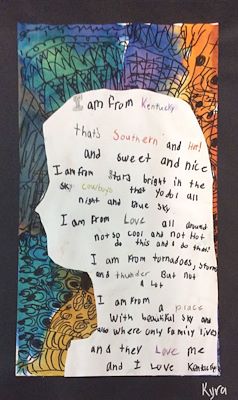 I am from Kentucky
that's Southern and Hot!
and sweet and nice
I am from Stars bright in the
sky cowboys that yodel all
night and blue sky
I am from Love all around
not so cool and not Hot
do this and do that!
I am from tornadoes, storms
and thunder But not
a lot
I am from a place
With beautiful sky and
where only Family lives
and they Love me
and I Love Kentucky
Kyra